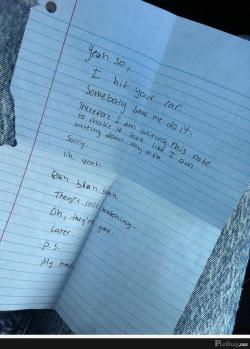 Yeah so,
I hit your car.
Somebody saw me do it.
Therefore I am writing this note
to make it look like I am
writing down my info.
Sorry.
Uh, yeah.
Blah blah blah.
They're still watching.
Oh, they're gone.
Later
P.S.
My bad